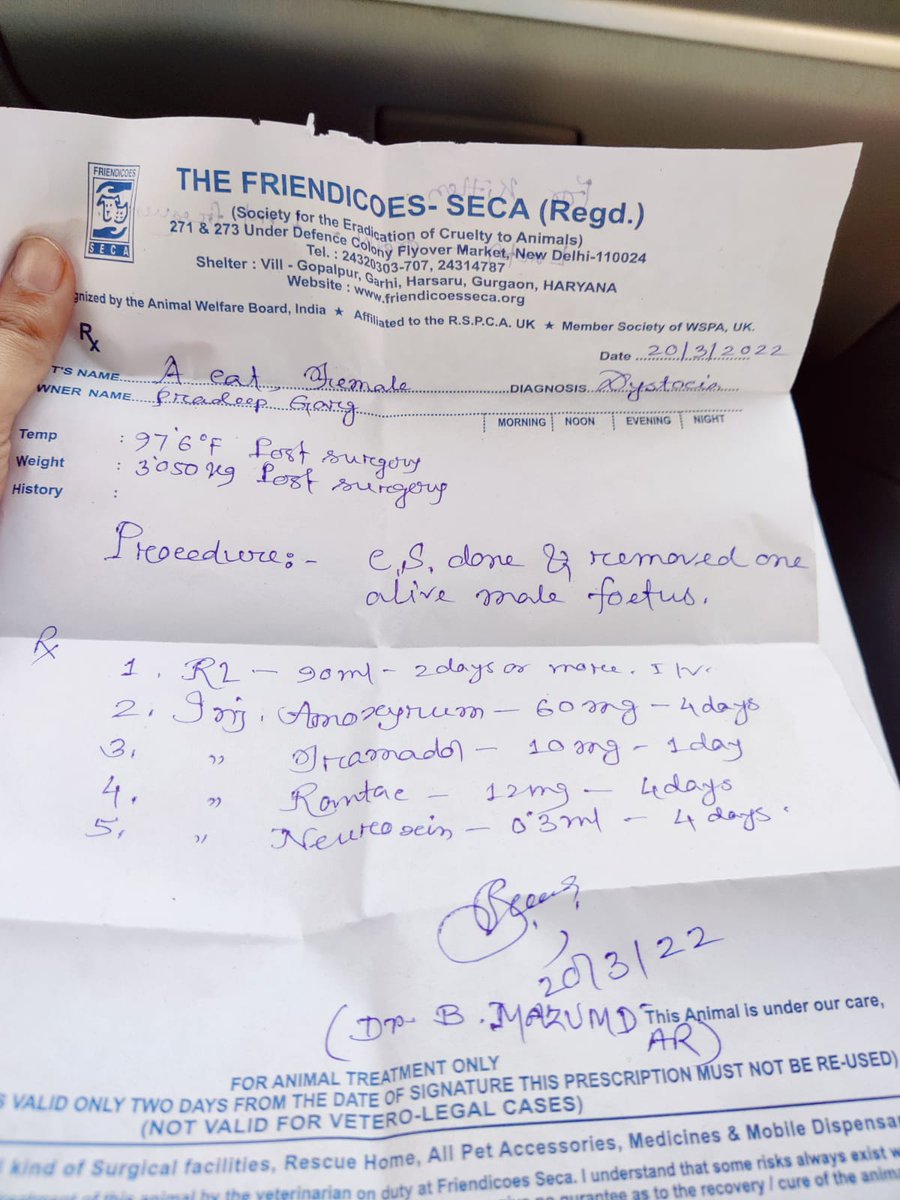 FRIENDICOES
SECA
THE FRIENDICOES- SECA (Regd.)
(Society for the Eradication of Cruelty to Animals)
271 & 273 Under Defence Colony Flyover Market, New Delhi-110024
Tel. : 24320303-707, 24314787
Shelter : Vill - Gopalpur, Garhi, Harsaru, Gurgaon, HARYANA
Website : www.friendicoesseca.org
gnized by the Animal Welfare Board, India ★ Affiliated to the R.S.P.C.A. UK ★ Member Society of WSPA, UK.
Rx
Date 20/3/2022
T'S NAME A cat, Female DIAGNOSIS Dystocia
WNER NAME Pradeep Garg
MORNING NOON EVENING NIGHT
Temp : 97°6°F Post surgery
Weight : 3°050 Kg Post surgery
History :
Procedure:- C.S. done & removed one
alive male foetus.
Rx
1. RL - 90ml - 2days or more. I/V.
2. Inj. Amoxyrum - 60mg - 4days
3. " Tramadol - 10mg - 1day
4. " Rantac - 12mg - 4days
5. " Neuroxin - 0°3ml - 4 days.
20/3/22
(Dr B. MAZUMDAR)
This Animal is under our care,
FOR ANIMAL TREATMENT ONLY
S VALID ONLY TWO DAYS FROM THE DATE OF SIGNATURE THIS PRESCRIPTION MUST NOT BE RE-USED)
(NOT VALID FOR VETERO-LEGAL CASES)
kind of Surgical facilities, Rescue Home, All Pet Accessories, Medicines & Mobile Dispensar
of this animal by the veterinarian on duty at Friendicoes Seca. I understand that some risks always exist w
no gurantee as to the recovery / cure of the anima